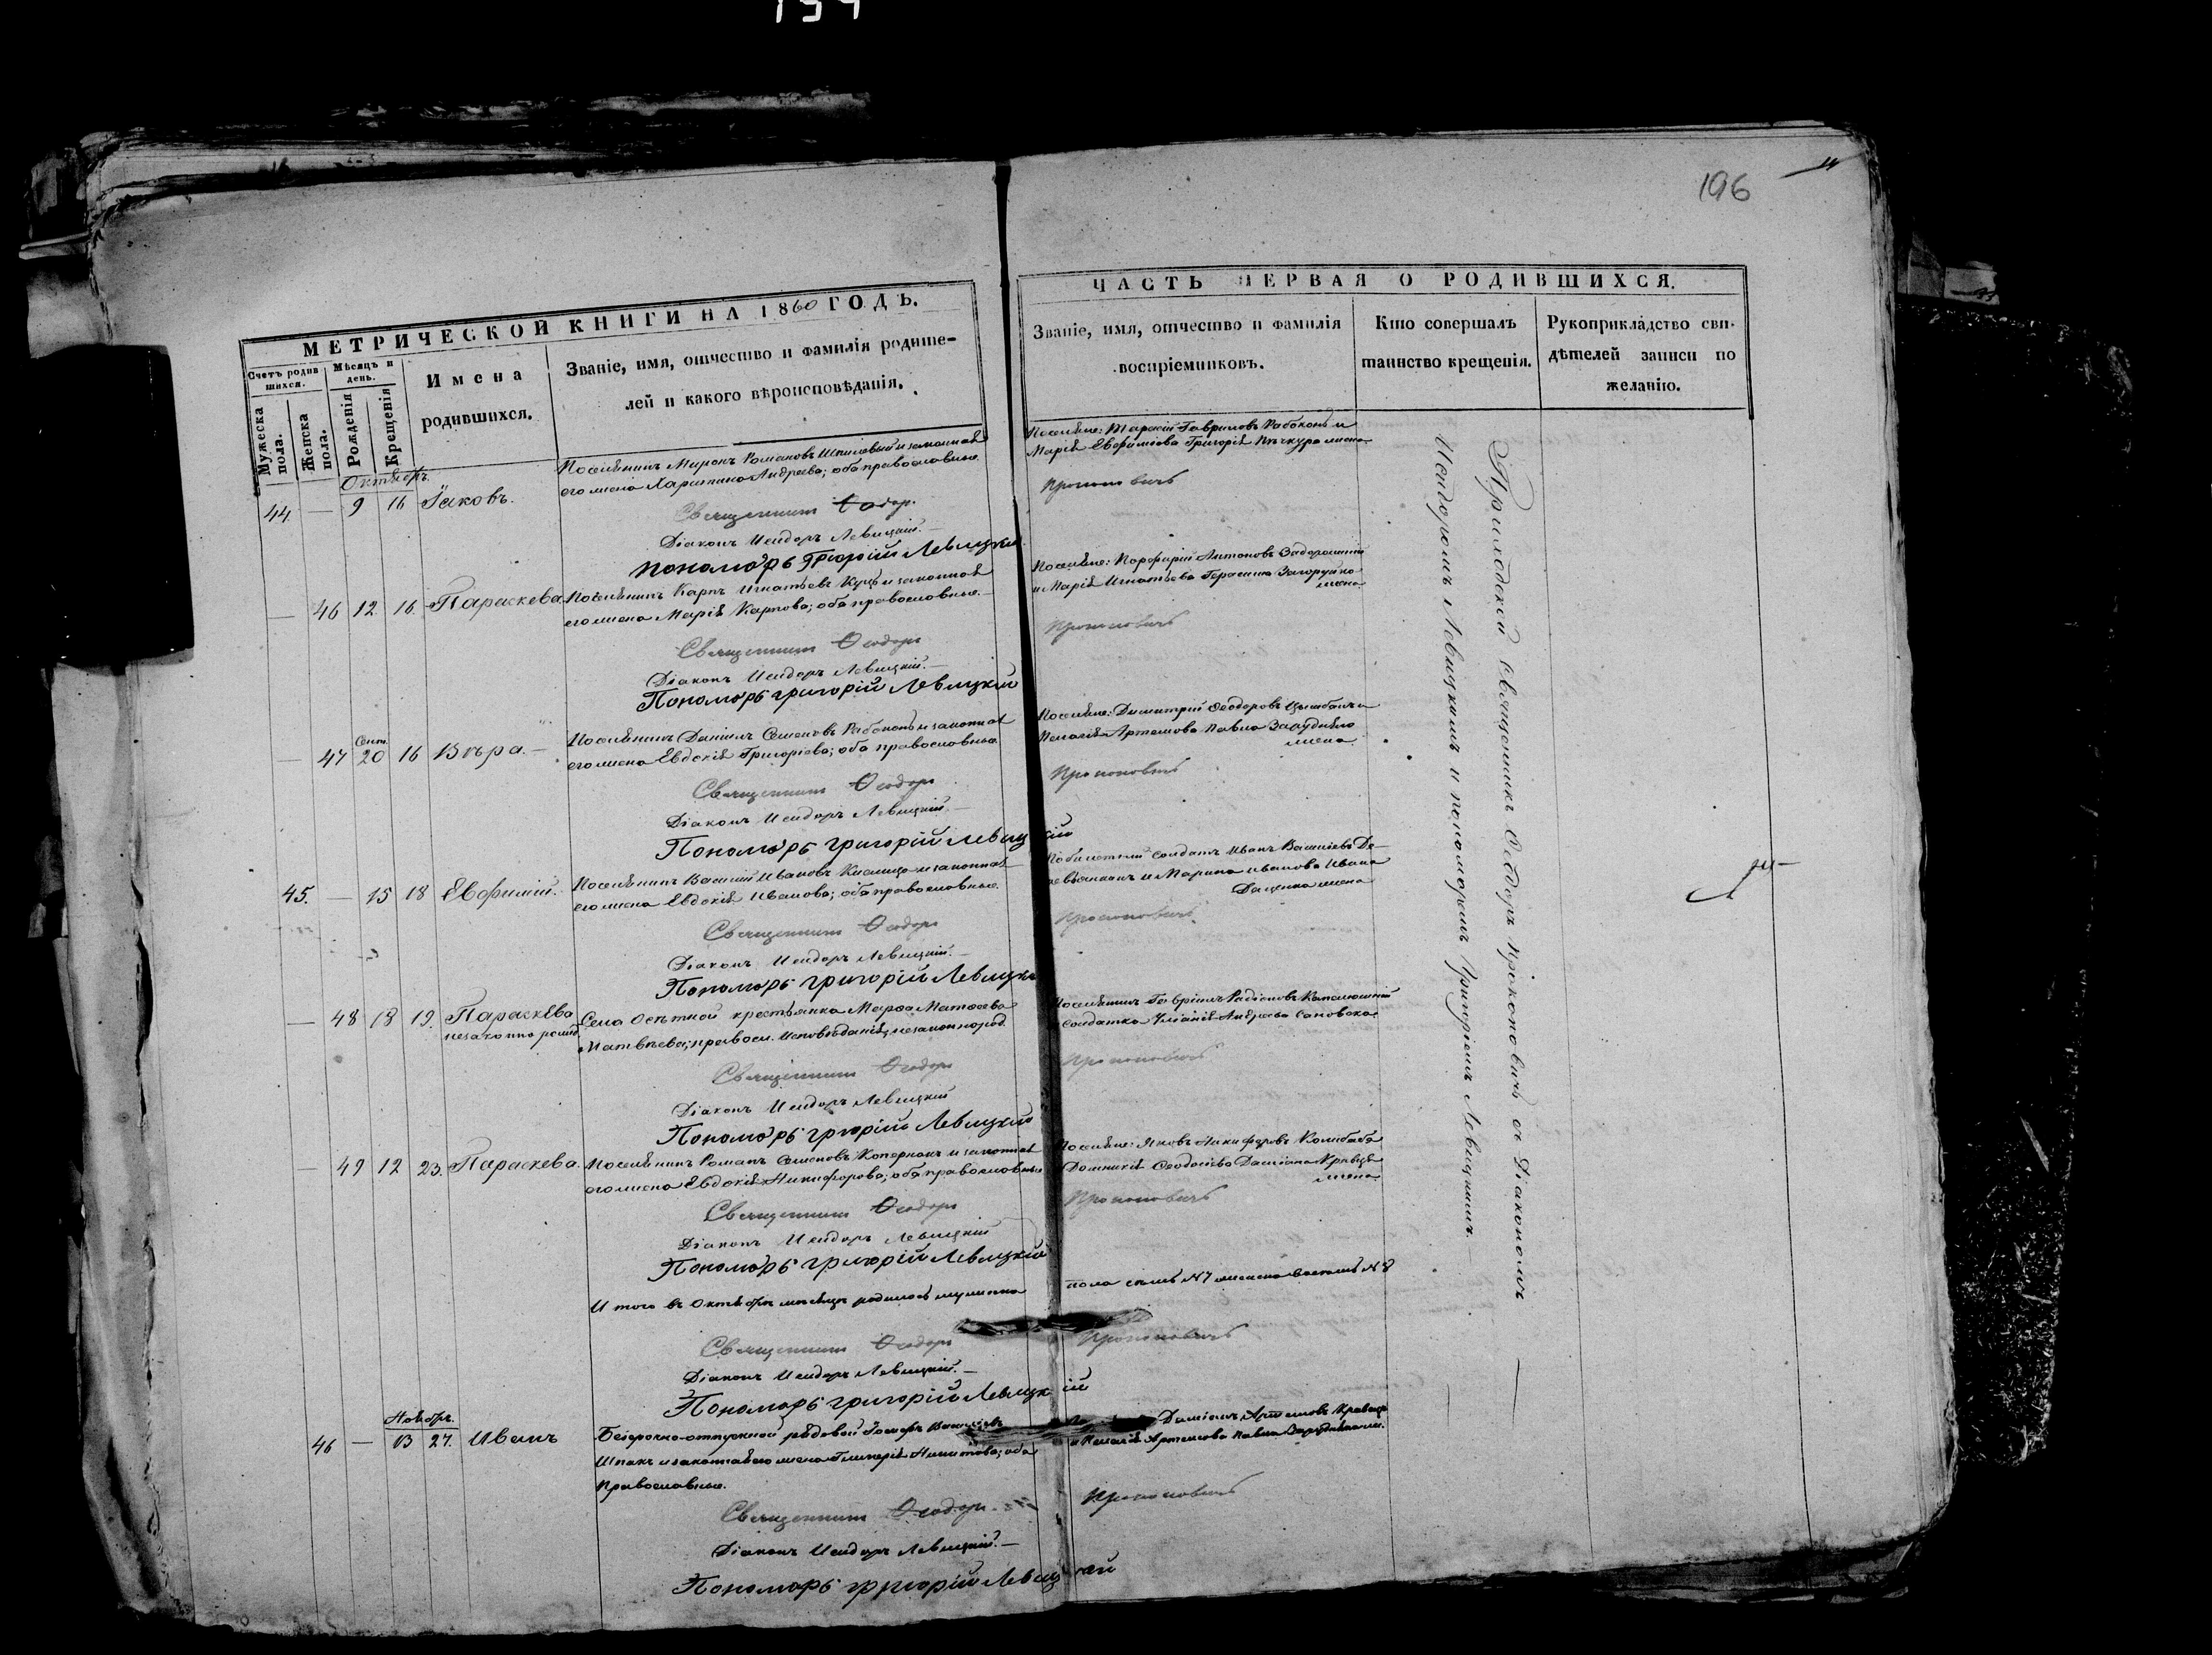 194
196
МЕТРИЧЕСКОЙ КНИГИ НА 1860 ГОДЪ.
Счетъ родив
шихся.
Мужеска
пола.
Женска
пола.
Мѣсяцъ и
день.
Рожденія
Крещенія
Имена
родившихся.
Званіе, имя, отчество и фамилія родите-
лей и какого вѣроисповѣданія.
Октябрь.
44. — 9 16 Іаковъ.
Поселянинъ Миронъ Романовъ и законная
его жена Харитина Андреева; оба православные.
Священникъ Ѳеодоръ
Діаконъ Исидоръ Левицкій.—
Пономарь Григорій Левицкій
— 46 12 16 Параскева
Поселянинъ Карпъ Игнатьевъ Куцъ и законная
его жена Марія Карпова; оба православные.—
Священникъ Ѳеодоръ
Діаконъ Исидоръ Левицкій.—
Пономарь Григорій Левицкій
— 47 Сент. 20 16 Вѣра.—
Поселянинъ Даніилъ Семеновъ Рабоконь и законная
его жена Евдокія Григоріева; оба православные.
Священникъ Ѳеодоръ
Діаконъ Исидоръ Левицкій.—
Пономарь Григорій Левицкій
45. — 15 18 Евфимій.
Поселянинъ Василій Ивановъ Кислица и законная
его жена Евдокія Иванова; оба православные.
Священникъ Ѳеодоръ
Діаконъ Исидоръ Левицкій.—
Пономарь Григорій Левицкій
— 48 18 19. Параскева
незаконно рожд.
Села крестьянка Марѳа
Матвѣева; правосл. исповѣданія, незаконнород.
Священникъ Ѳеодоръ
Діаконъ Исидоръ Левицкій
Пономарь Григорій Левицкій
— 49 12 23. Параскева.
Поселянинъ Романъ Семеновъ и законная
его жена Евдокія Никифорова; оба православные
Священникъ Ѳеодоръ
Діаконъ Исидоръ Левицкій
Пономарь Григорій Левицкій
И того въ Октябрѣ мѣсяцѣ родилось мужеска
Священникъ Ѳеодоръ
Діаконъ Исидоръ Левицкій.—
Пономарь Григорій Левицкій
Ноябрь.
46 — 13 27. Иванъ
Безсрочно-отпускной рядовой Іосифъ
Шпакъ и законная его жена Гликерія Никитова; оба
православные.
Священникъ Ѳеодоръ
Діаконъ Исидоръ Левицкій.—
Пономарь Григорій Левицкій
ЧАСТЬ ПЕРВАЯ О РОДИВШИХСЯ.
Званіе, имя, отчество и фамилія
воспріемниковъ.
Кто совершалъ
таинство крещенія.
Рукоприкладство сви-
дѣтелей записи по
желанію.
Поселяне: Тарасій Гавриловъ Рабоконь и
Марія Евфиміова Григорія жена
Прокоповичъ
Поселяне: Порфирій Антоновъ Задорожній
и Марія Игнатьева Герасима Загоруйко
жена
Прокоповичъ
Поселяне: Димитрій Ѳеодоровъ Цымбалъ и
Пелагія Артемова Павла
жена
Прокоповичъ
солдатъ Иванъ Васильевъ
и Марина Иванова Ивана
Даценка жена
Прокоповичъ
Поселянинъ Гавріилъ Радіоновъ
Солдатка Уліанія Андреева
Прокоповичъ
Поселяне: Яковъ Никифоровъ Колибаба
Домникія Ѳеодосіева Даміана Кравца
жена
Прокоповичъ
пола семь №7 женска восемь №8
Прокоповичъ
Даміанъ Артемовъ Кравецъ
и Пелагія Артемова Павла
Прокоповичъ
Приходскій священникъ Ѳеодоръ Прокоповичъ съ Діакономъ
Исидоромъ Левицкимъ и пономаремъ Григоріемъ Левицкимъ.